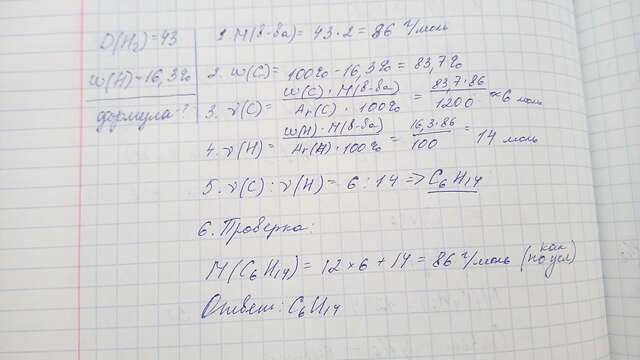 D(H₂)=43
w(H)-16,3%
формула?
1. M(в-ва)= 43·2=86 г/моль
2. w(C)= 100% - 16,3% = 83,7%
3. ν(C)= w(C)·M(в-ва) / Ar(C)·100% = 83,7·86 / 1200 ≈ 6 моль
4. ν(H)= w(H)·M(в-ва) / Ar(H)·100% = 16,3·86 / 100 = 14 моль
5. ν(C):ν(H)= 6:14 => C₆H₁₄
6. Проверка:
M(C₆H₁₄)= 12×6+14 = 86 г/моль (как по усл)
Ответ: C₆H₁₄